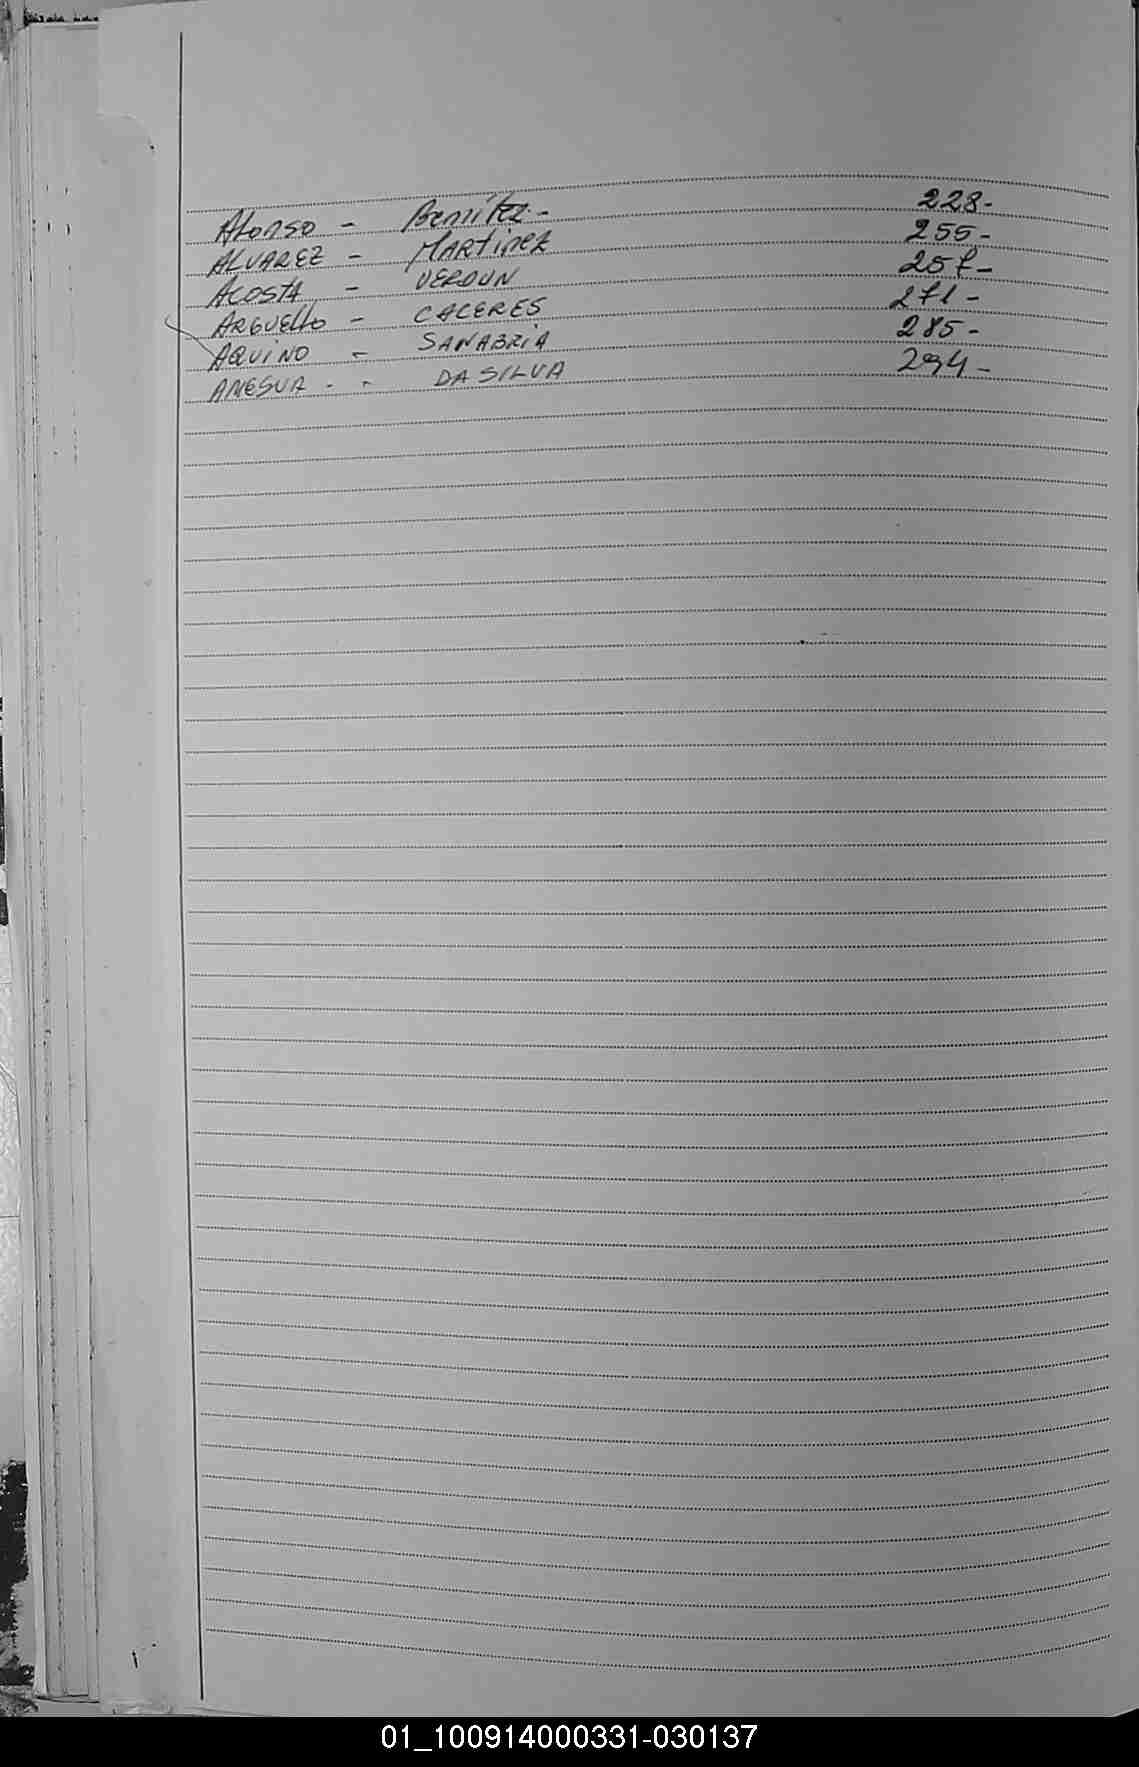 Alonso - Benitez - 228-
ALVAREZ - MARTINEZ 255-
ACOSTA - VERDUN 257-
ARGUELLO - CACERES 271-
AQUINO - SANABRIA 285-
- - DA SILVA 294-
01_100914000331-030137